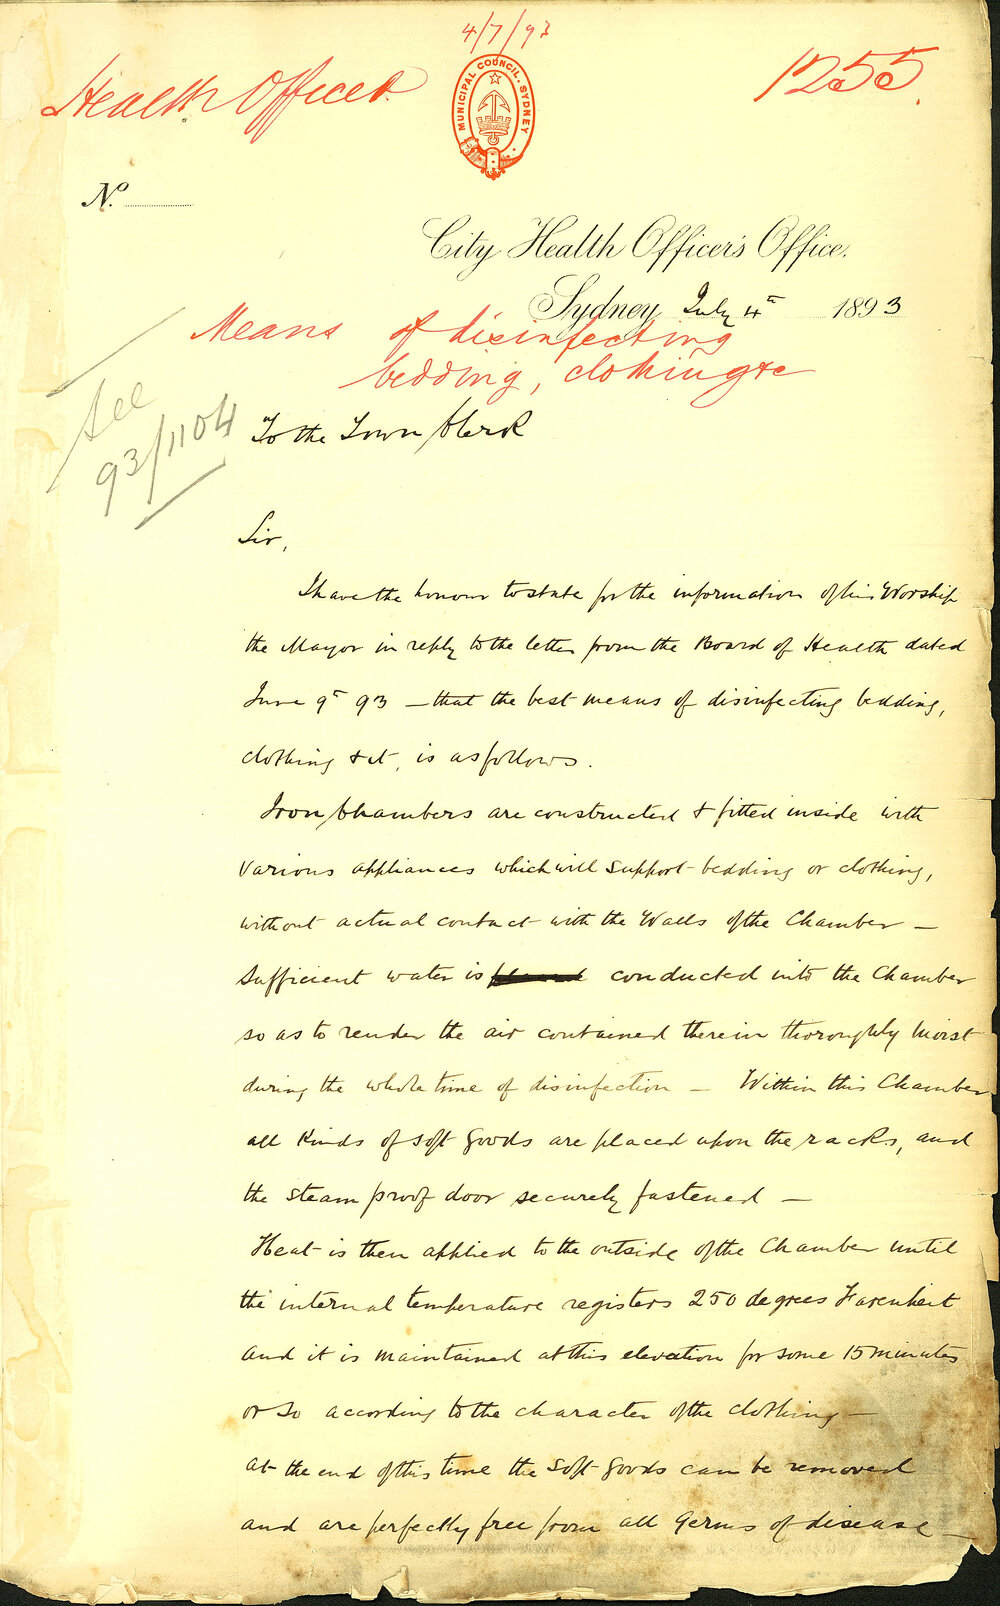 4/7/93
Health Officer
1255.
MUNICIPAL COUNCIL. SYDNEY
No.
City Health Officer's Office.
Sydney July 4th 1893
Means of disinfecting
bedding, clothing &c
See
93/1104
To the Town Clerk
Sir,
I have the honour to state for the information of his Worship
the Mayor in reply to the letter from the Board of Health dated
June 9th 93 – that the best means of disinfecting bedding,
clothing &ct, is as follows.
Iron Chambers are constructed & fitted inside with
various appliances which will support bedding or clothing,
without actual contact with the Walls of the Chamber –
Sufficient water is conducted into the Chamber
so as to render the air contained therein thoroughly moist
during the whole time of disinfection – Within this Chamber
all kinds of soft goods are placed upon the racks, and
the steam proof door securely fastened –
Heat is then applied to the outside of the Chamber until
the internal temperature registers 250 degrees Farenheit
and it is maintained at this elevation for some 15 minutes
or so according to the character of the clothing –
at the end of this time the soft goods can be removed
and are perfectly free from all Germs of disease –